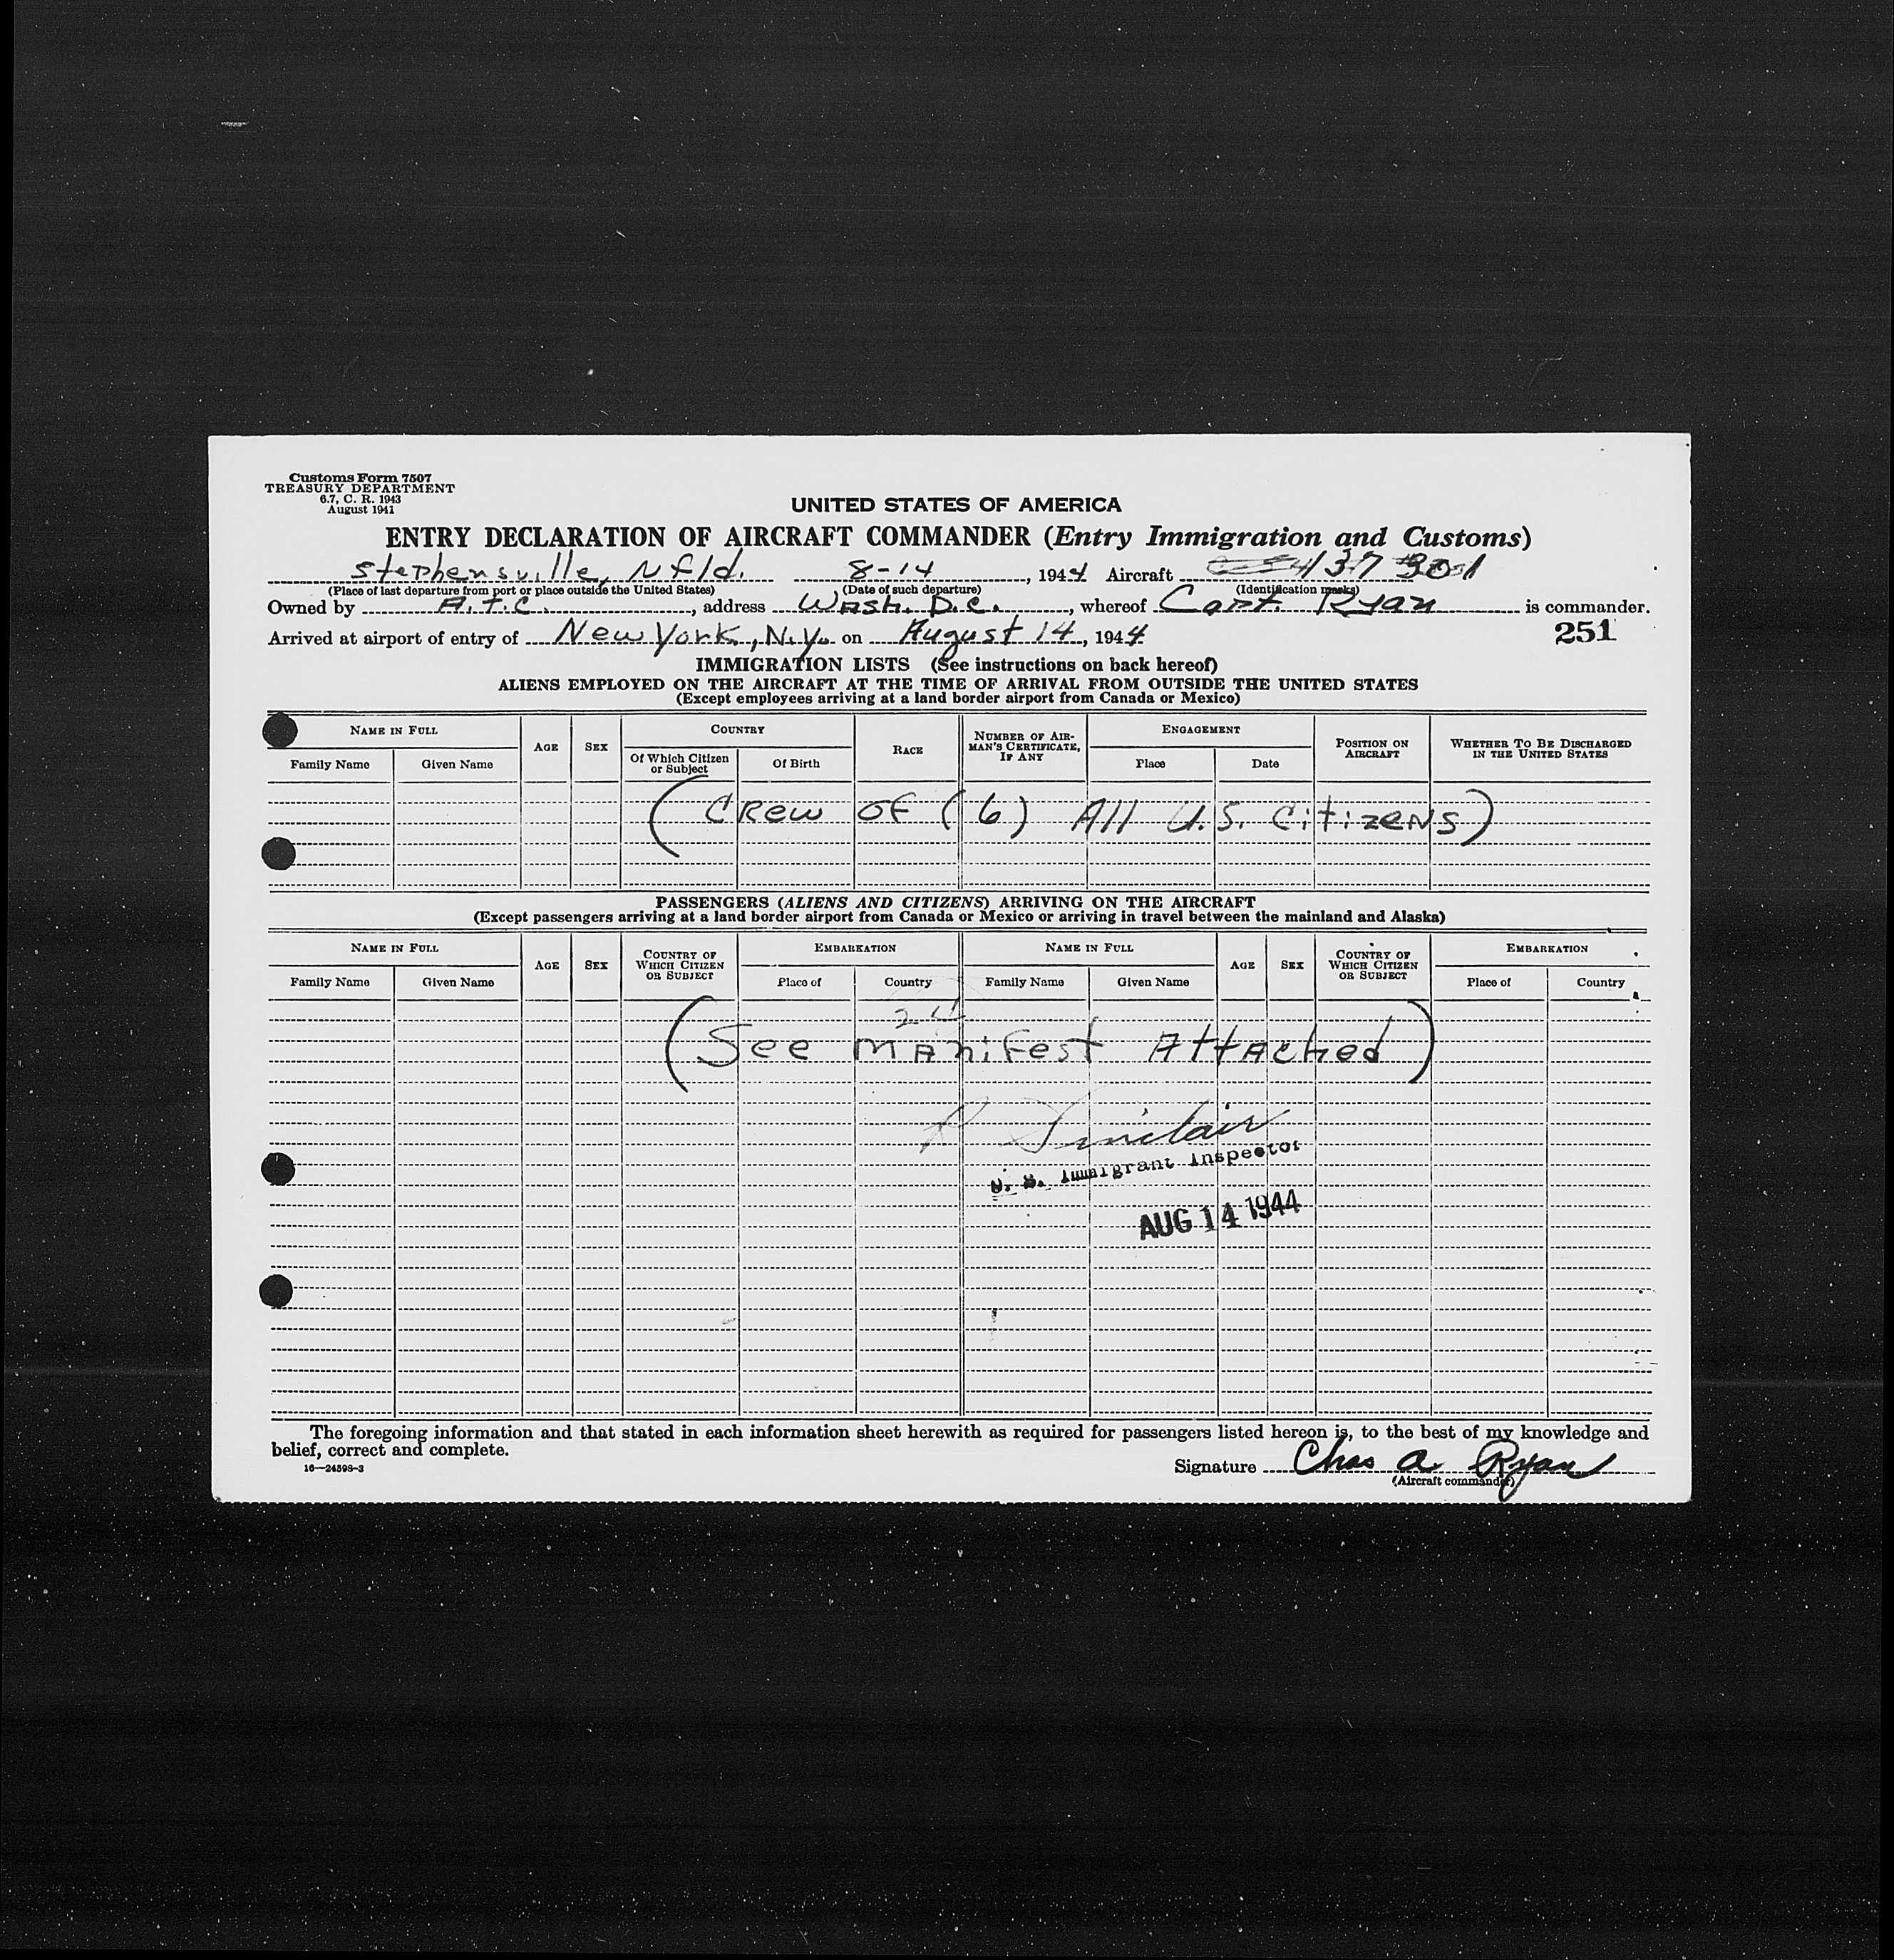 Customs Form 7507
TREASURY DEPARTMENT
6.7, C. R. 1943
August 1941
UNITED STATES OF AMERICA
ENTRY DECLARATION OF AIRCRAFT COMMANDER (Entry Immigration and Customs)
Stephensville, Nfld. 8-14, 1944 Aircraft 37301
(Place of last departure from port or place outside the United States) (Date of such departure) (Identification marks)
Owned by A.T.C., address Wash. D.C., whereof Capt. Ryan is commander.
Arrived at airport of entry of New York, N.Y. on August 14, 1944
251
IMMIGRATION LISTS (See instructions on back hereof)
ALIENS EMPLOYED ON THE AIRCRAFT AT THE TIME OF ARRIVAL FROM OUTSIDE THE UNITED STATES
(Except employees arriving at a land border airport from Canada or Mexico)
NAME IN FULL AGE SEX COUNTRY RACE NUMBER OF AIRMAN'S CERTIFICATE, IF ANY ENGAGEMENT POSITION ON AIRCRAFT WHETHER TO BE DISCHARGED IN THE UNITED STATES
Family Name Given Name Of Which Citizen or Subject Of Birth Place Date
(Crew of (6) All U.S. Citizens)
PASSENGERS (ALIENS AND CITIZENS) ARRIVING ON THE AIRCRAFT
(Except passengers arriving at a land border airport from Canada or Mexico or arriving in travel between the mainland and Alaska)
NAME IN FULL AGE SEX COUNTRY OF WHICH CITIZEN OR SUBJECT EMBARKATION NAME IN FULL AGE SEX COUNTRY OF WHICH CITIZEN OR SUBJECT EMBARKATION
Family Name Given Name Place of Country Family Name Given Name Place of Country
24
(See Manifest Attached)
R Sinclair
U. S. Immigrant Inspector
AUG 14 1944
The foregoing information and that stated in each information sheet herewith as required for passengers listed hereon is, to the best of my knowledge and
belief, correct and complete.
16—24598-3
Signature Chas A. Ryan
(Aircraft commander)